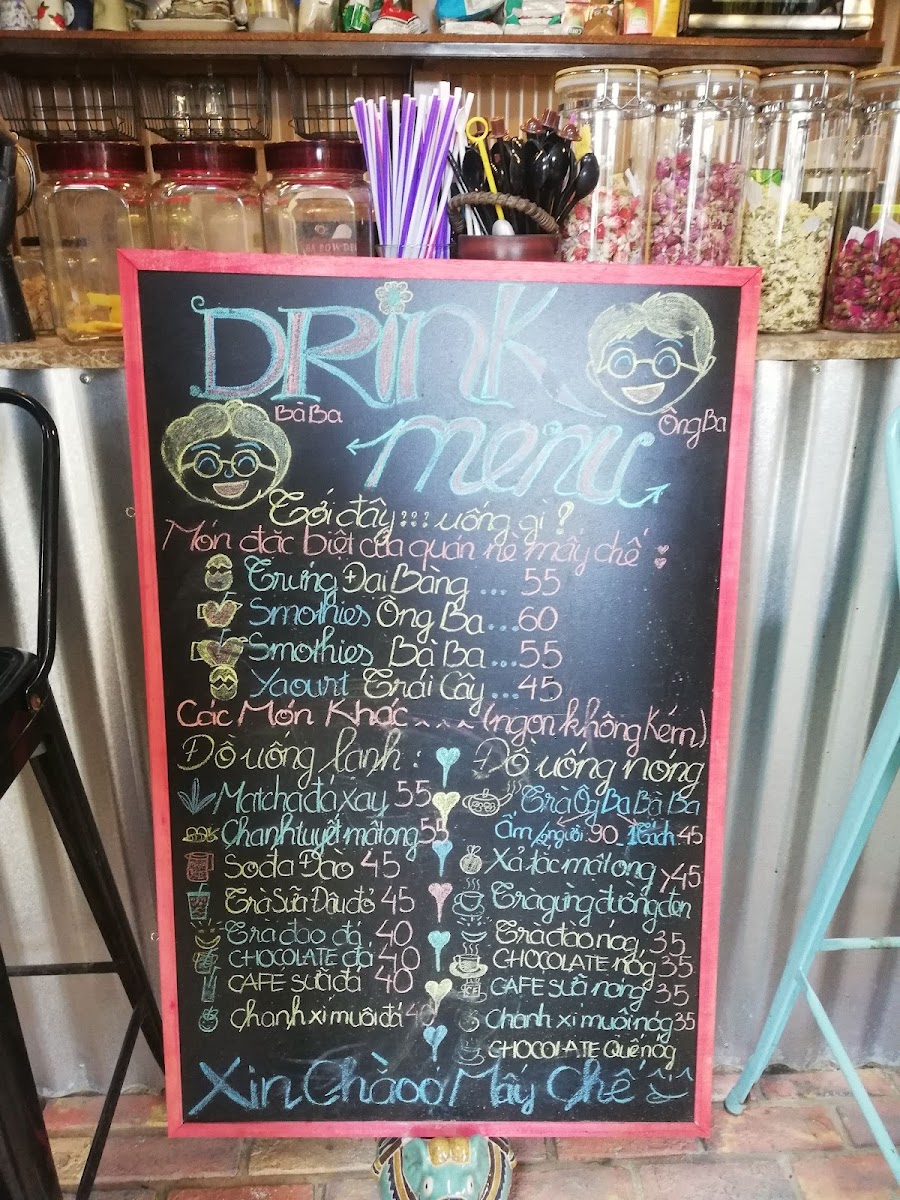 BA POWDER
DRiNK
Bà Ba
Ông Ba
menu
Tới đây ::: uống gì ?
Món đặc biệt của quán nè mấy chế
Trứng Đại Bàng ... 55
Smothies Ông Ba ... 60
Smothies Bà Ba ... 55
Yaourt Trái Cây ... 45
Các Món Khác (ngon không kém)
Đồ uống lạnh :
Matcha đá xay 55
Chanh tuyết mật ong 55
Soda Đào 45
Trà Sữa Đậu đỏ 45
Trà đào đá 40
CHOCOLATE đá 40
CAFE sữa đá 40
chanh xí muội đá 40
Đồ uống nóng
Trà Ôg Ba Bà Ba
Ấm 90 1 Tách 45
Xả tắc mật ong 45
Trà gừng đường đen
Trà đào nóg 35
CHOCOLATE nóg 35
CAFE sữa nóng 35
Chanh xí muội nóg 35
CHOCOLATE Quế nóg
Xin Chàoo Mấy Chế